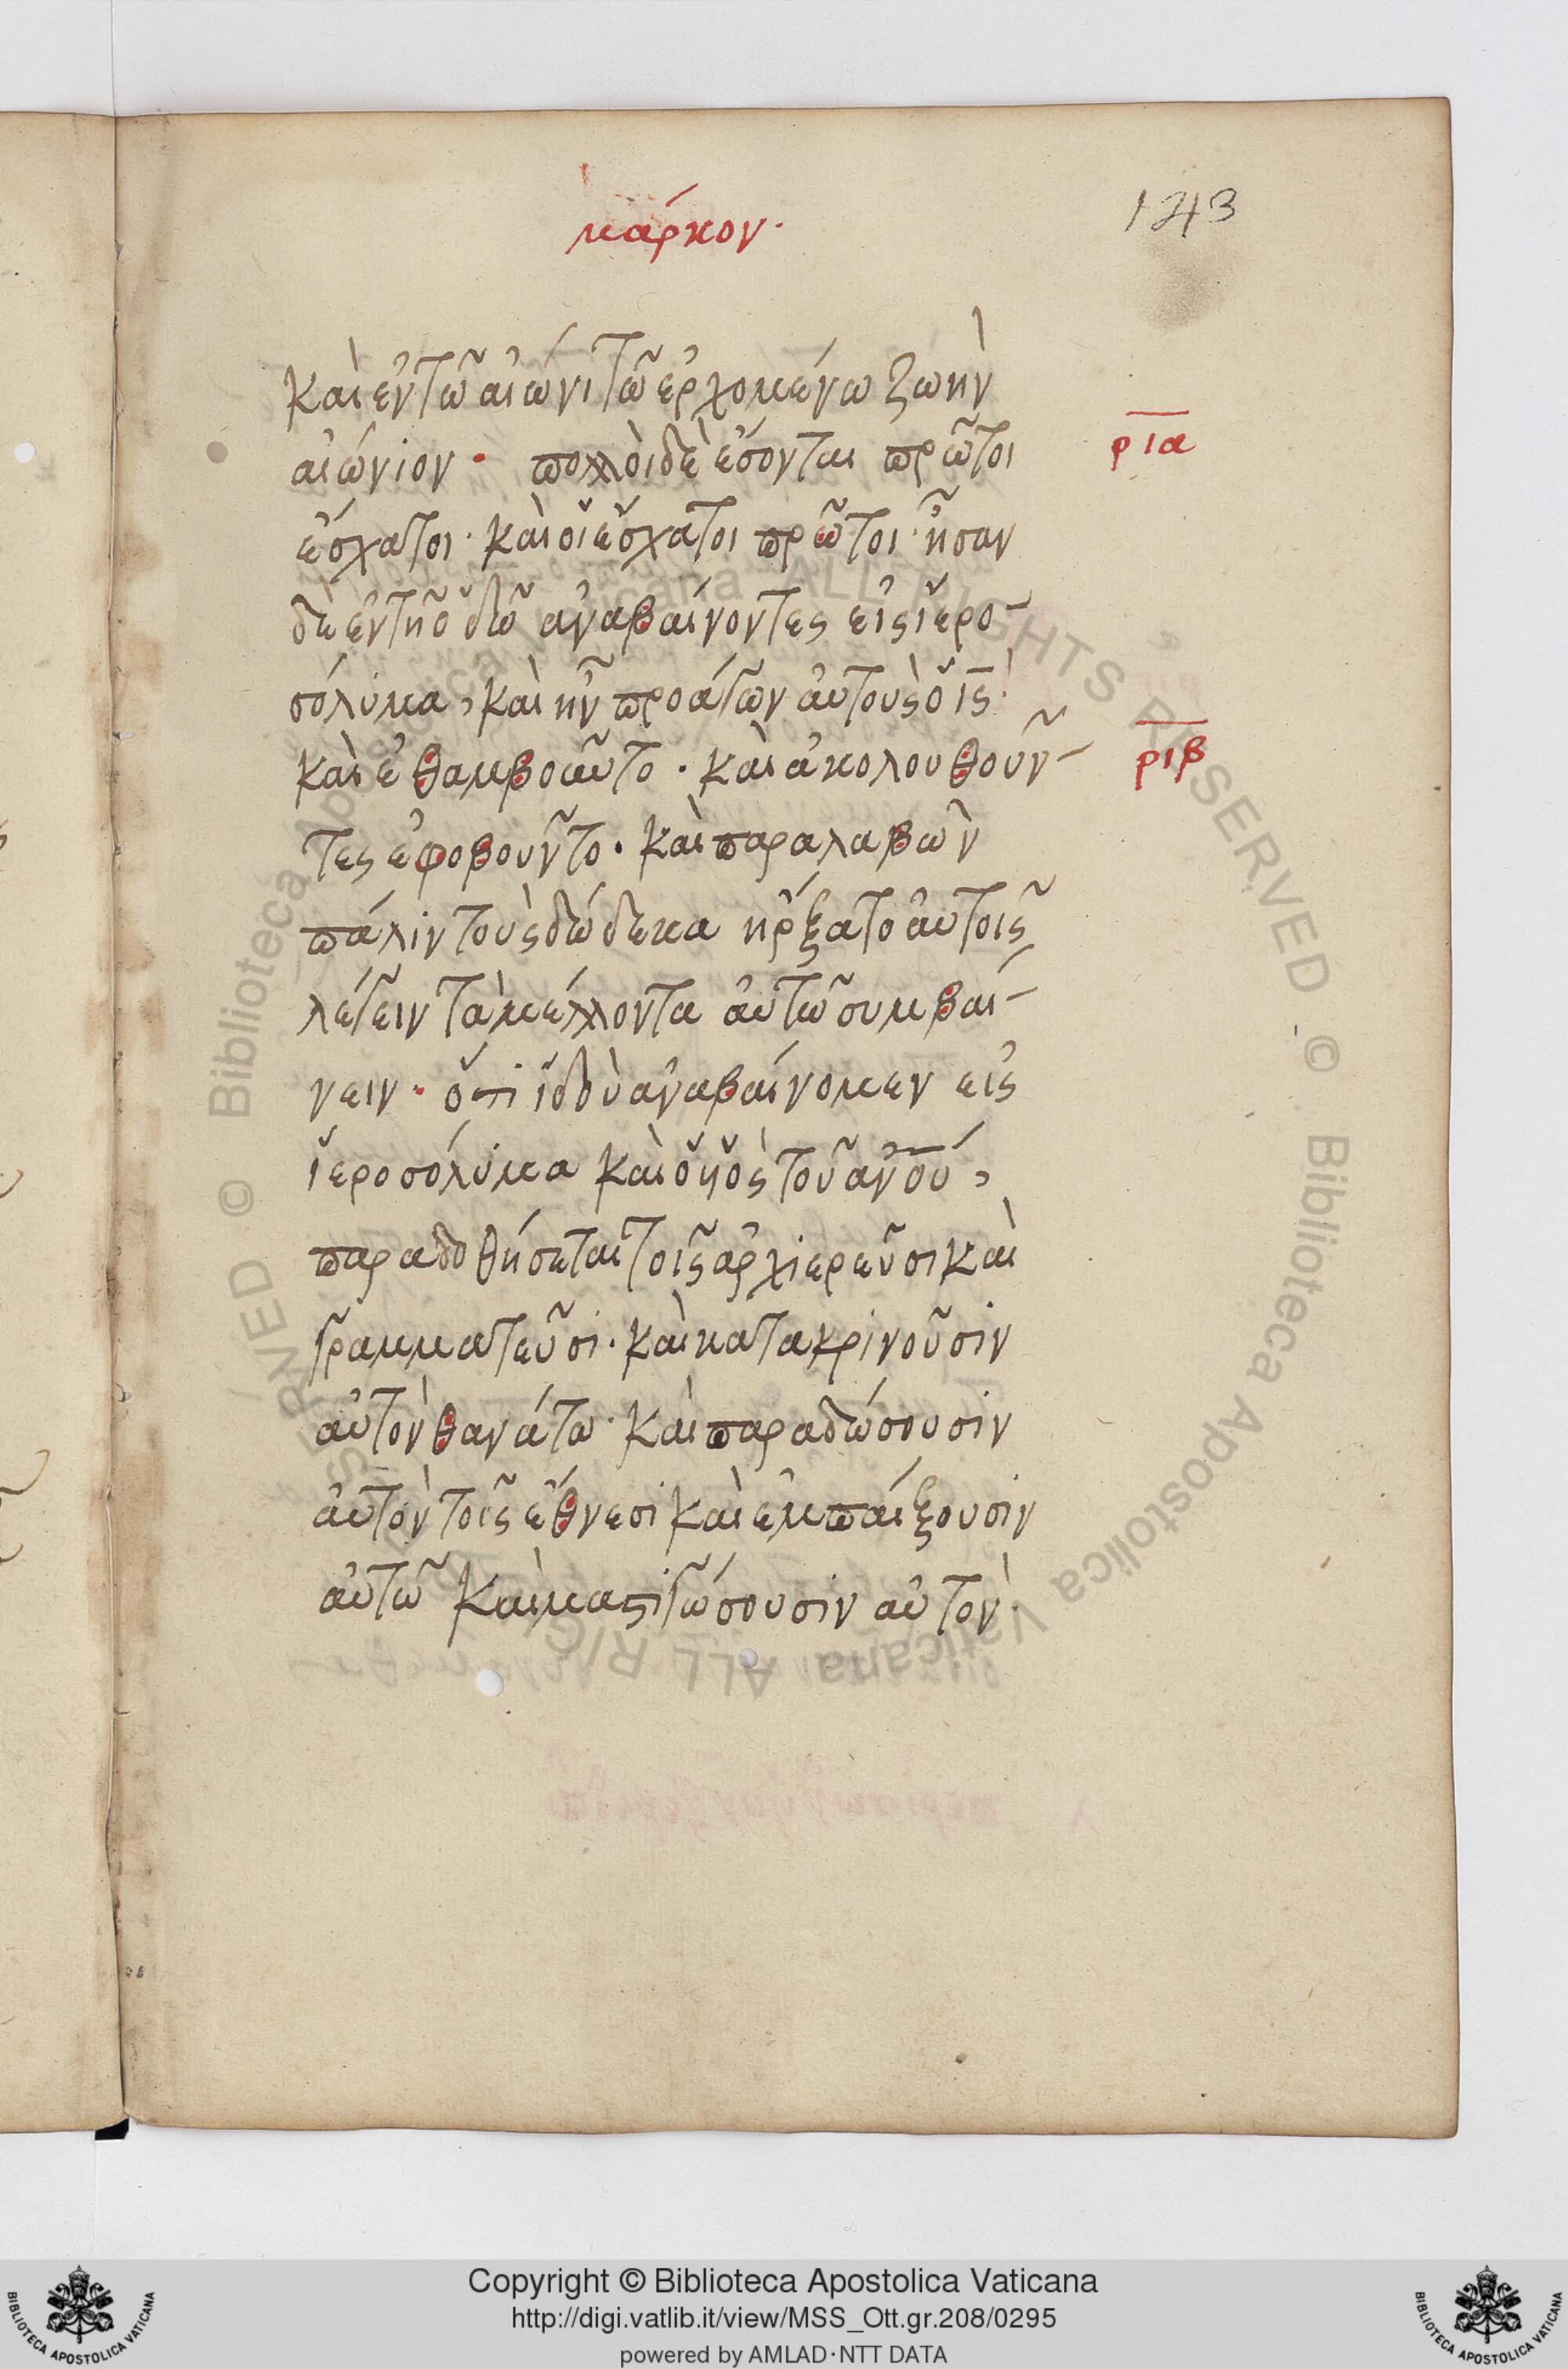 μάρκον·
143
καὶ ἐν τῶ αἰώνι τῶ ἐρχομένω ζωὴν
αἰώνιον· πολλοὶ δὲ ἔσονται πρῶτοι
ρια
ἔσχατοι· καὶ οἱ ἔσχατοι πρῶτοι· ἦσαν
δὲ ἐν τῆ ὁδῶ ἀναβαίνοντες εἰς ἱερο-
σόλυμα, καὶ ἦν προάγων αὐτοὺς ὁ ις·
καὶ ἐθαμβοῦντο· καὶ ἀκολουθοῦν-
ριβ
τες ἐφοβοῦντο· καὶ παραλαβὼν
πάλιν τοὺς δώδεκα ἤρξατο αὐτοῖς
λέγειν τὰ μέλλοντα αὐτῶ συμβαί-
νειν· ὅτι ἰδοὺ ἀναβαίνομεν εἰς
ἱεροσόλυμα καὶ ὁ υἱὸς τοῦ ανου,
παραδοθήσεται τοῖς ἀρχιερεῦσι καὶ
γραμματεῦσι· καὶ κατακρινοῦσιν
αὐτὸν θανάτω· καὶ παραδώσουσιν
αὐτὸν τοῖς ἔθνεσι καὶ ἐμπαίξουσιν
αὐτῶ καὶ μαστιγώσουσιν αὐτὸν·
Copyright © Biblioteca Apostolica Vaticana
http://digi.vatlib.it/view/MSS_Ott.gr.208/0295
powered by AMLAD·NTT DATA
BIBLIOTECA APOSTOLICA VATICANA
BIBLIOTECA APOSTOLICA VATICANA